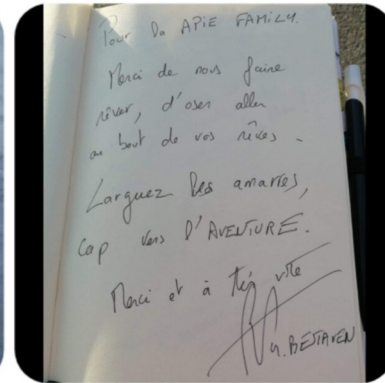 Pour la APiE FAMILY.
Merci de nous faire
rêver, d'oser aller
au bout de vos rêves.
Larguez les amarres,
Cap vers l'AVENTURE.
Merci et à très vite
Y. BESTAVEN